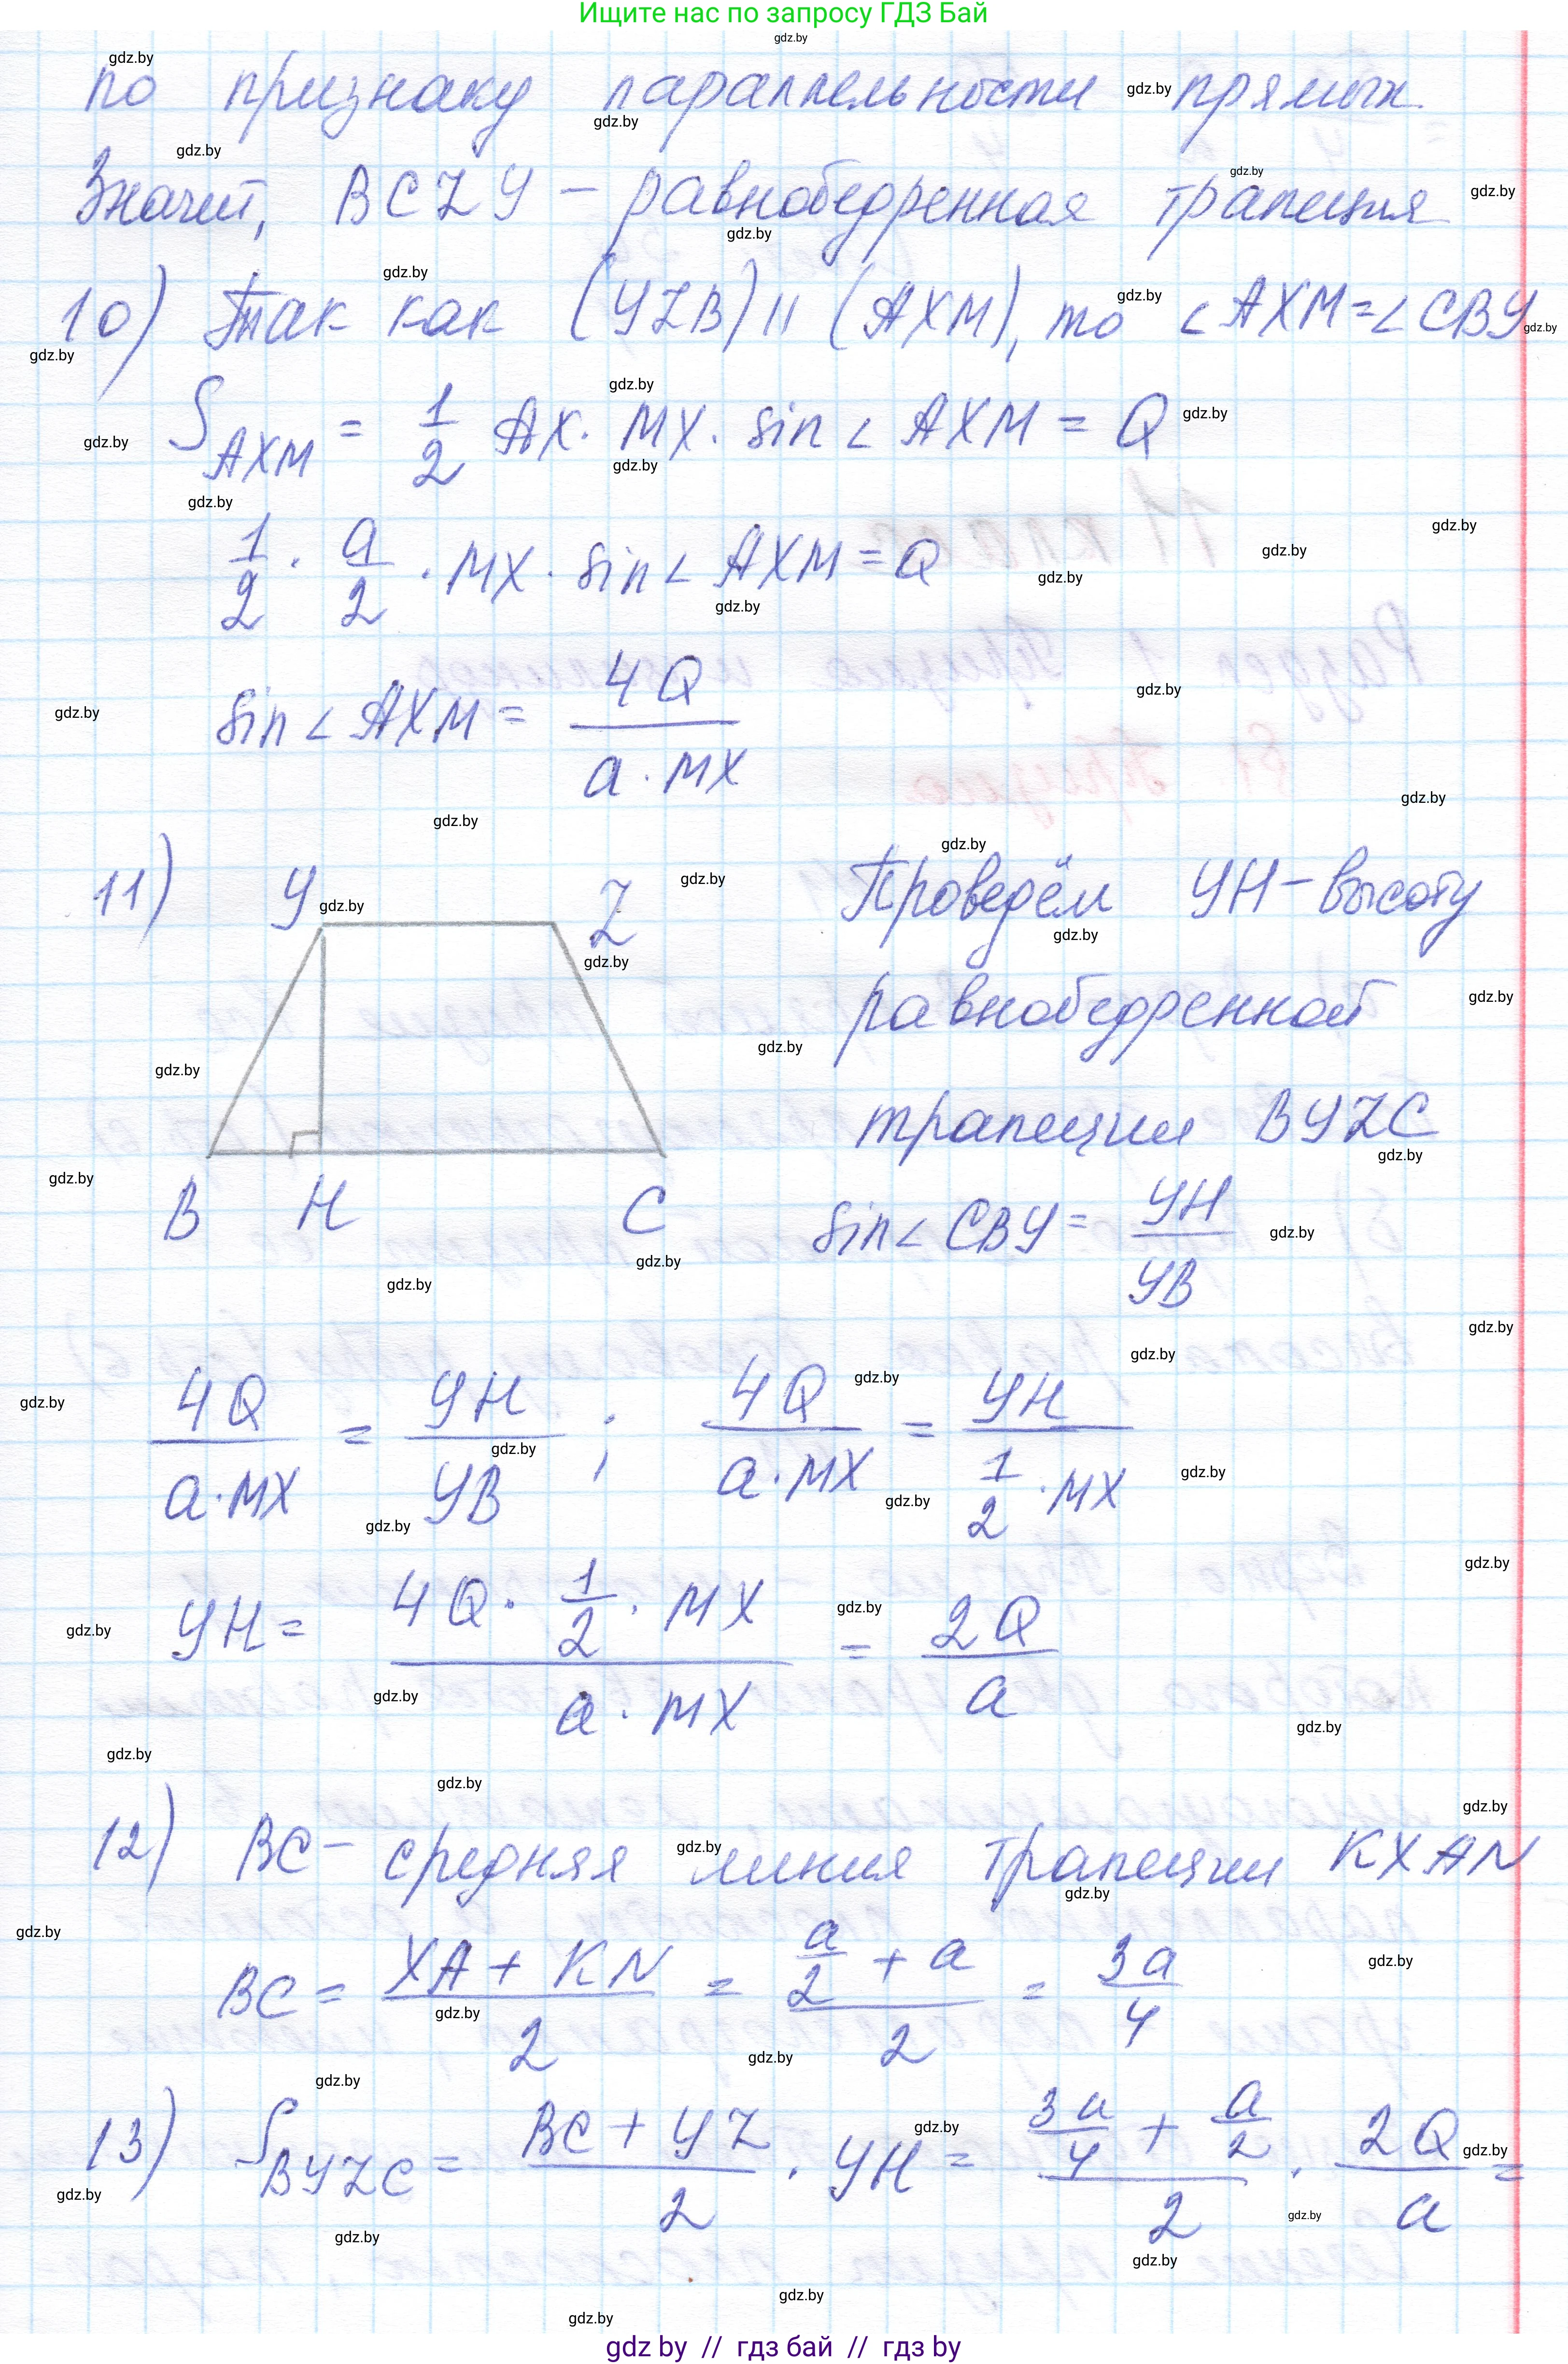 Ищите нас по запросу ГДЗ Бай
по признаку параллельности прямых
Значит, BCZY – равнобедренная трапеция
10) Так как (YZB) || (AXM), то ∠AXM = ∠CBY
S_AXM = 1/2 AX · MX · sin∠AXM = Q
1/2 · a/2 · MX · sin∠AXM = Q
sin∠AXM = 4Q/(a · MX)
11) Y Z
B H C
Проведём YH – высоту
равнобедренной
трапеции BYZC
sin∠CBY = YH/YB
4Q/(a·MX) = YH/YB ; 4Q/(a·MX) = YH/(1/2 · MX)
YH = (4Q · 1/2 · MX)/(a · MX) = 2Q/a
12) BC – средняя линия трапеции KXAN
BC = (XA + KN)/2 = (a/2 + a)/2 = 3a/4
13) S_BYZC = (BC + YZ)/2 · YH = (3a/4 + a/2)/2 · 2Q/a =
gdz by // гдз бай // гдз by